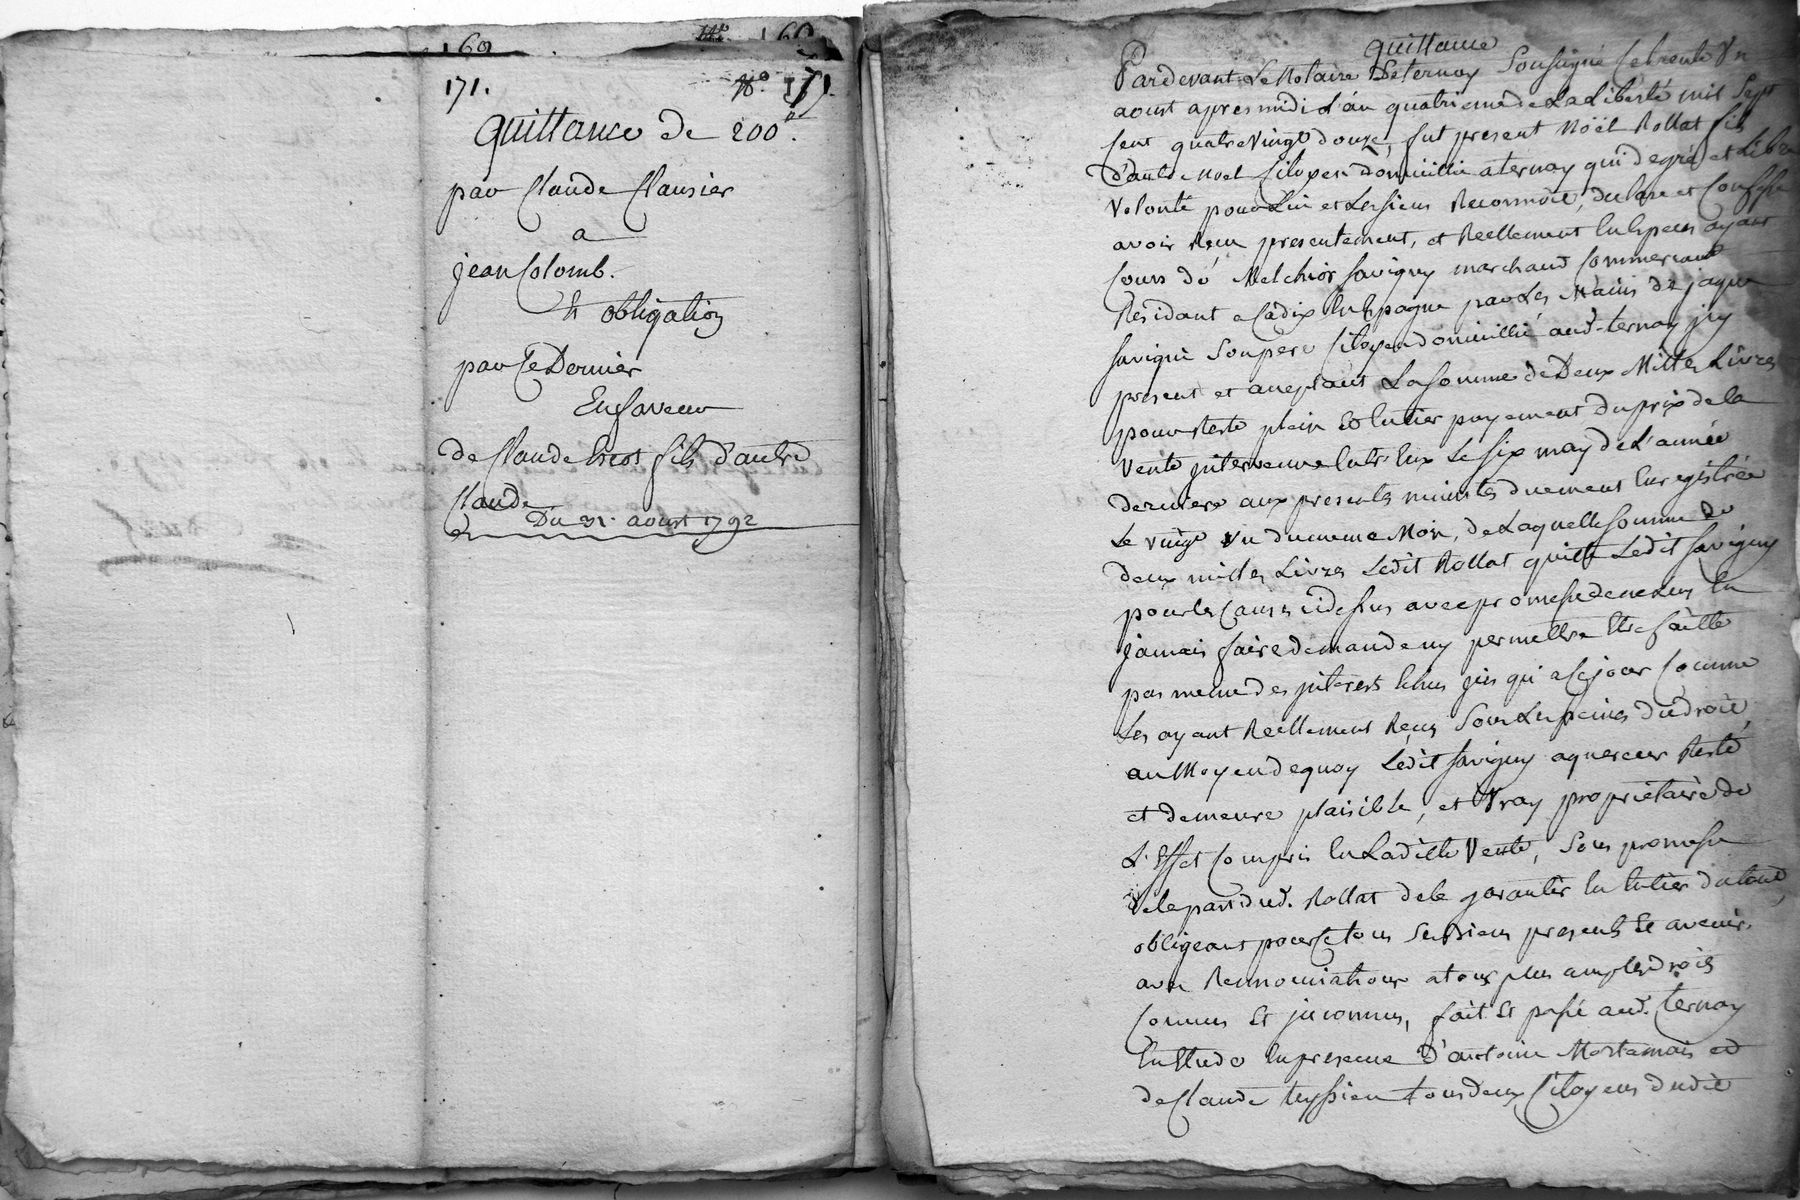 169
160
171.
N.° 171.
Quittance de 200.ᵗᵗ
par Claude Clausier
a
jean Colomb.
Et obligation
par Ce Dernier
En faveur
de Claude fils d'autre
Claude
Du 31. aoust 1792
quittance
Pardevant Le Notaire De ternay Soussigné Cetrente Un
aoust apres midi L'an quatrieme de La Liberté mil Sept
Cent quatre Vingt douze, fut present Noël Rollat fils
d'autre Noel Citoyen domicillié a ternay qui degré et Libre
Volonté pour Lui et Les siens Reconnoit, declare et Confesse
avoir Receu presentement, et Reellement En Especes ayant
Cours de Melchior Savigny marchand Commercant
Residant a Cadix En Espagne par Les Mains de jaque
Savigni Son pere Citoyen domicillié aud. ternay jcy
present et aceptant La Somme de Deux Milles Livres
pour Reste plain Et Entier payement du prix de la
Vente jntervenue Entr'Eux Le Six may de L'année
derniere aux presentes minutes duement Enregistrée
Le vingt un du meme Mois, de Laquelle Somme de
deux milles Livres Ledit Rollat quitte Ledit Savigny
pour les Causes si dessus avec promesse de ne Lui En
jamais faire demande ny permettre Etre faitte
pas meme des jnterets Echus jus qu'a Ce jour Comme
Les ayant Reellement Receus Sous Les peines du droit,
au Moyen dequoy Ledit Savigny aquereur Reste
et demeure plaisible, et Vray proprietaire de
L'Effet Compris En Laditte Vente, Sous promesse
de la part dud. Rollat de le garantir En Entier du tout,
obligeant pour Ce tous Ses Biens presents Et avenir,
avec Rennonciation a tous plus amples droits
Connus Et jnconnus, fait Et passé aud. ternay
En Etude En presence d'antoine Mortamais et
de Claude teyssieu tous deux Citoyens dudit